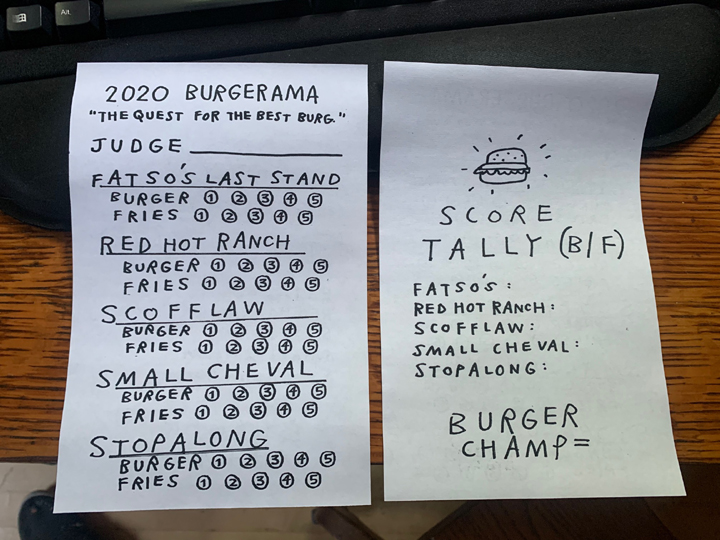 Alt.
2020 BURGERAMA
"THE QUEST FOR THE BEST BURG."
JUDGE
FATSO'S LAST STAND
BURGER 1 2 3 4 5
FRIES 1 2 3 4 5
RED HOT RANCH
BURGER 1 2 3 4 5
FRIES 1 2 3 4 5
SCOFFLAW
BURGER 1 2 3 4 5
FRIES 1 2 3 4 5
SMALL CHEVAL
BURGER 1 2 3 4 5
FRIES 1 2 3 4 5
STOPALONG
BURGER 1 2 3 4 5
FRIES 1 2 3 4 5
SCORE
TALLY (B/F)
FATSO'S:
RED HOT RANCH:
SCOFFLAW:
SMALL CHEVAL:
STOPALONG:
BURGER
CHAMP=